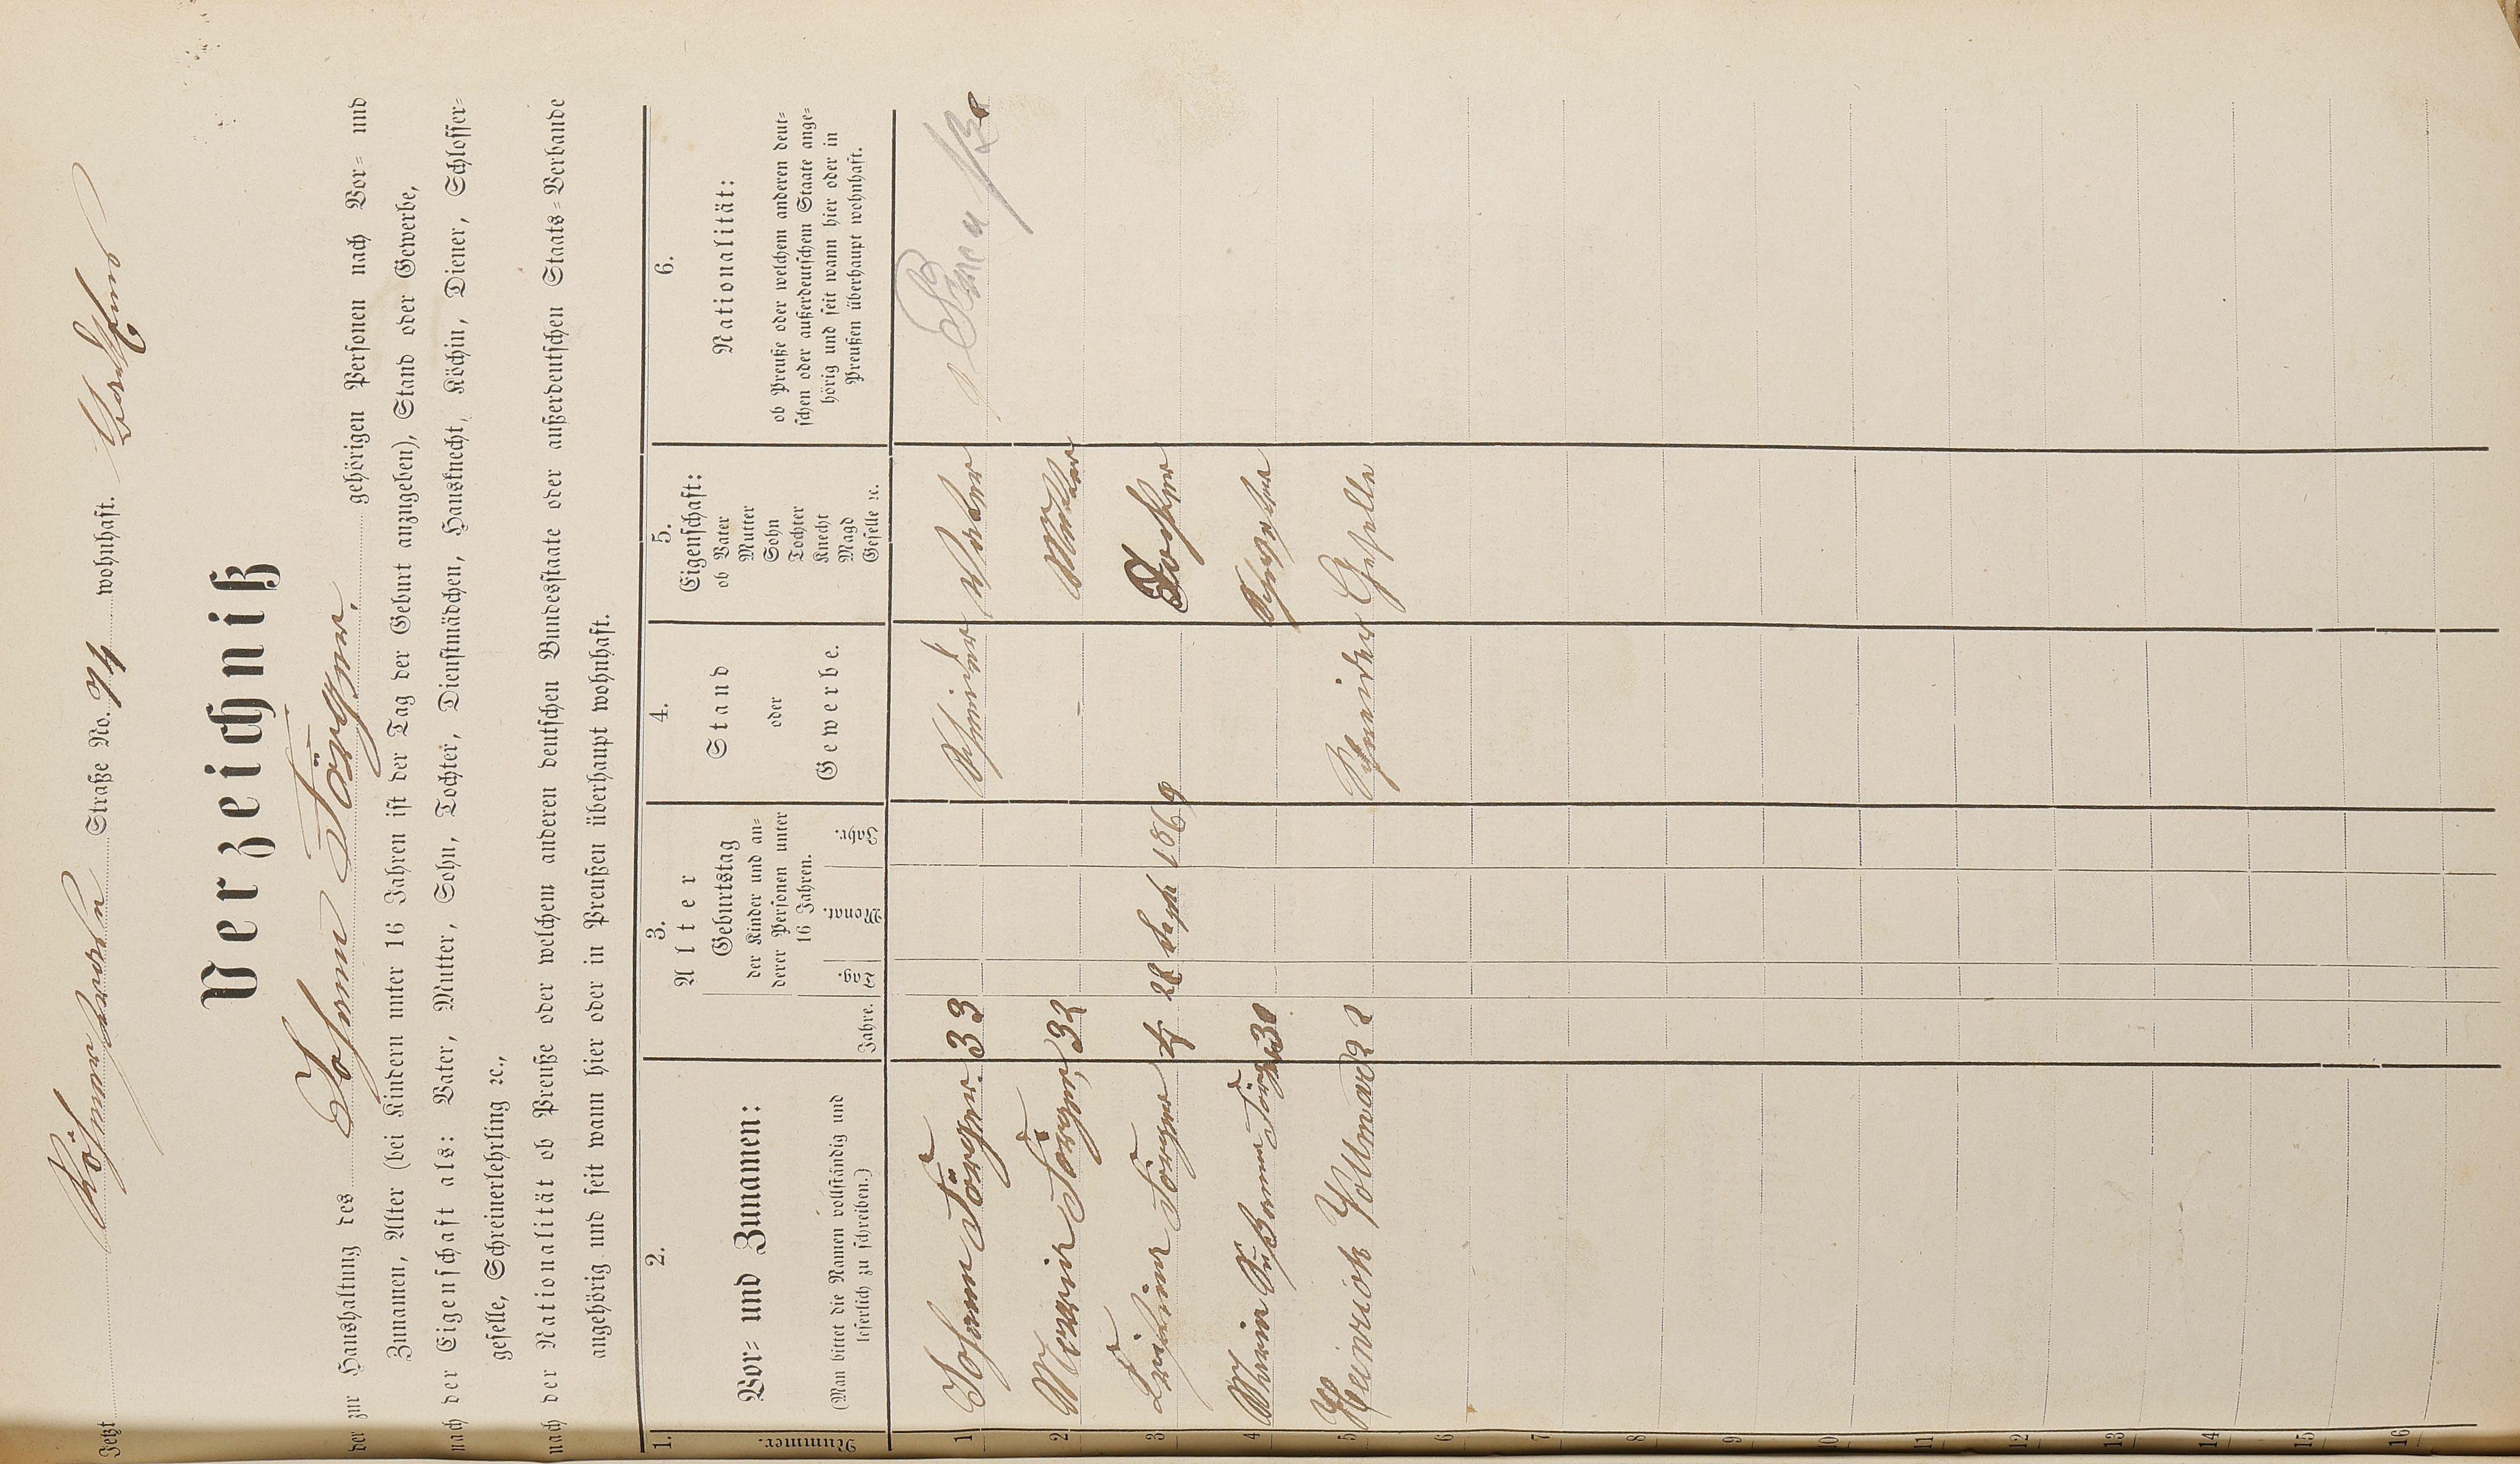 Jetzt Straße No. 94 wohnhaft.
Verzeichniß
der zur Haushaltung des Johann Törtzer. gehörigen Personen nach Vor- und
Zunamen, Alter (bei Kindern unter 16 Jahren ist der Tag der Geburt anzugeben), Stand oder Gewerbe,
nach der Eigenschaft als: Vater, Mutter, Sohn, Tochter, Dienstmädchen, Hausknecht, Köchin, Diener, Schlosser-
geselle, Schreinerlehrling ꝛc.,
nach der Nationalität ob Preuße oder welchem anderen deutschen Bundesstaate oder außerdeutschen Staats-Verbande
angehörig und seit wann hier oder in Preußen überhaupt wohnhaft.
1. 2. 3. 4. 5. 6.
Nummer.
Vor- und Zunamen:
(Man bittet die Namen vollständig und
leserlich zu schreiben.)
Alter
Jahre.
Geburtstag
der Kinder und an-
derer Personen unter
16 Jahren.
Tag. Monat. Jahr.
Stand
oder
Gewerbe.
Eigenschaft:
ob Vater
Mutter
Sohn
Tochter
Knecht
Magd
Geselle ꝛc.
Nationalität:
ob Preuße oder welchem anderen deut-
schen oder außerdeutschem Staate ange-
hörig und seit wann hier oder in
Preußen überhaupt wohnhaft.
1 Johann 33 Schneider Vater Preuße
2 Maria 32 Mutter
3 4 28 Sept 1869 Tochter
4 Maria Susanna 30 Schwester
5 Heinrich Vollmar 22 Schneider Geselle
6
7
8
9
10
11
12
13
14
15
16